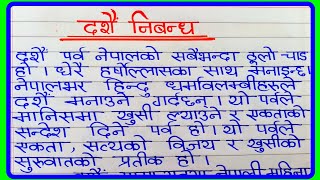 दशैँ निबन्ध
दशैँ पर्व नेपालको सबैभन्दा ठूलो चाड
हो । धेरै हर्षोल्लासका साथ मनाइन्छ।
नेपालभर हिन्दु धर्मावलम्बीहरुले
दशैँ मनाउने गर्दछन् । यो पर्वले
मानिसमा खुसी ल्याउने र एकताको
सन्देश दिने पर्व हो । यो पर्वले
एकता, सत्यको विजय र खुसीको
सुरुवातको प्रतीक हो ।
नेपाली महिना